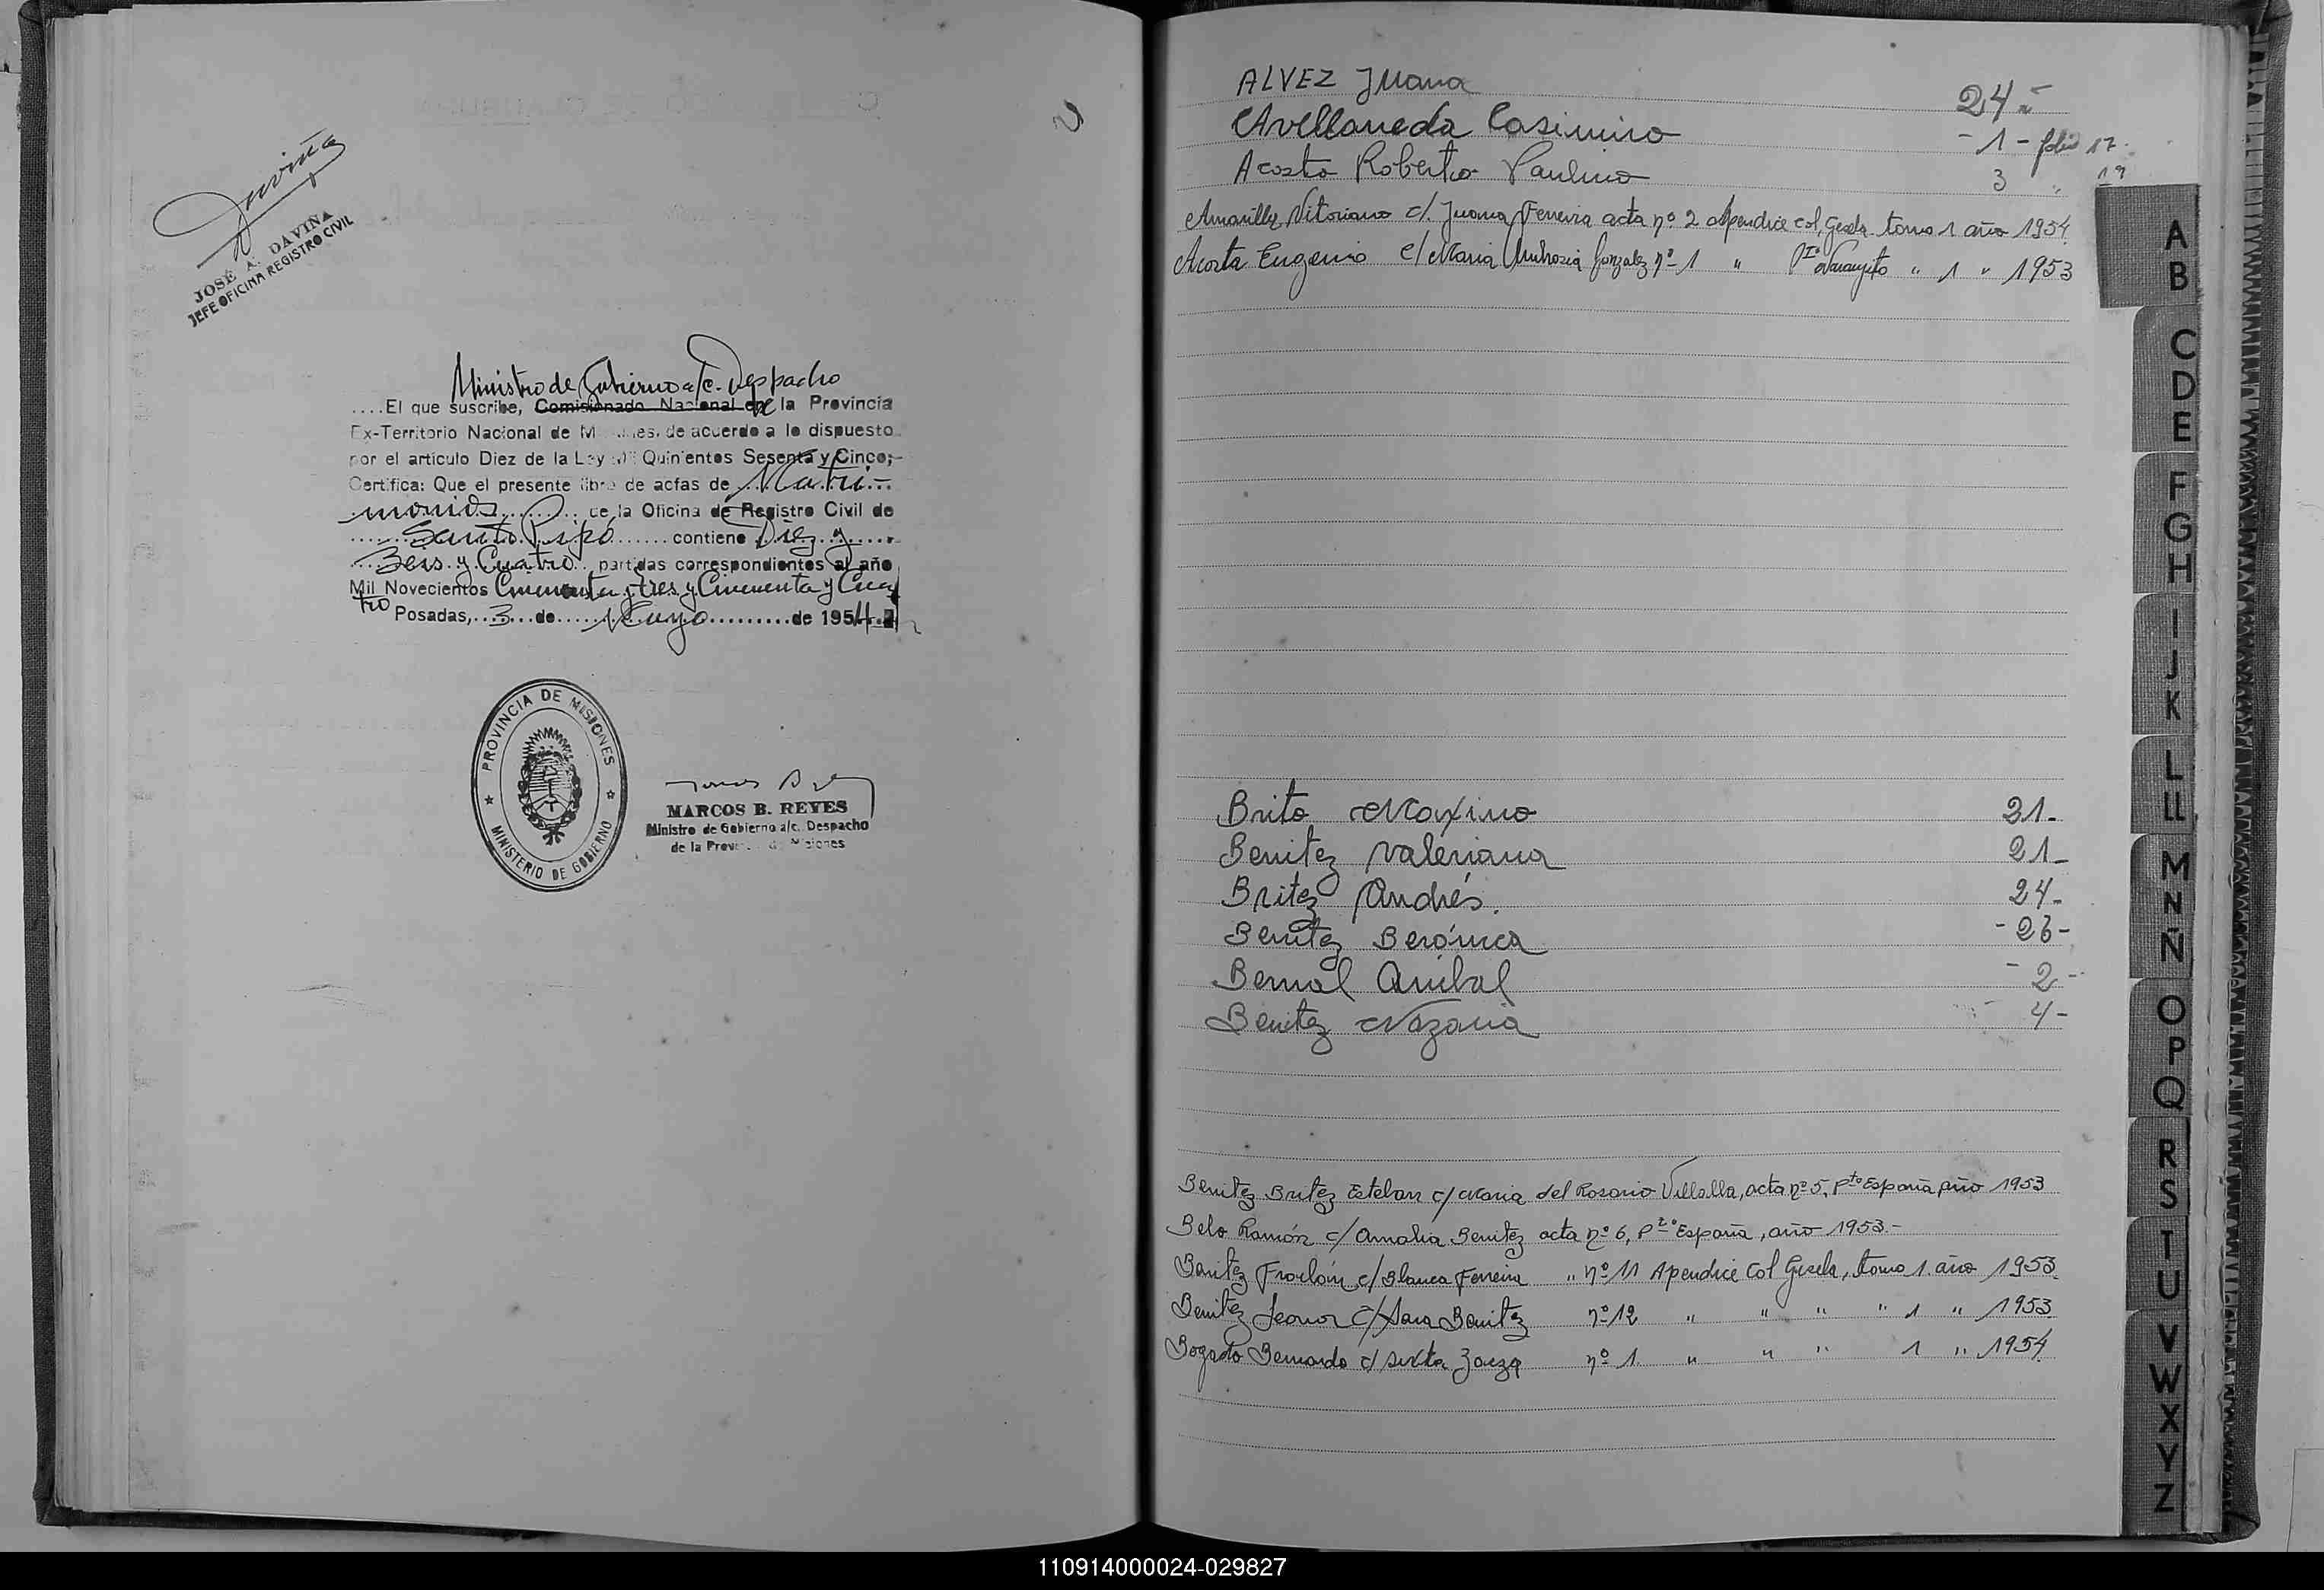 Daviña
JOSÉ A. DAVIÑA
JEFE OFICINA REGISTRO CIVIL
Ministro de Gobierno a/c. Despacho
....El que suscribe, Comisionado Nacional en de la Provincia
Ex-Territorio Nacional de Misiones, de acuerdo a lo dispuesto
por el artículo Diez de la Ley Mil Quinientos Sesenta y Cinco;-
Certifica: Que el presente libro de actas de Matri-
monios de la Oficina de Registro Civil de
Santo Pipó contiene Diez y
Seis y Cuatro partidas correspondientes al año
Mil Novecientos Cincuenta y tres y Cincuenta y Cua
tro
Posadas, 3 de Mayo de 1954
PROVINCIA DE MISIONES
MINISTERIO DE GOBIERNO
MARCOS B. REYES
Ministro de Gobierno a/c. Despacho
de la Provincia de Misiones
ALVEZ Juana 24-
Avellaneda Casimiro - 1 - folio 17
Acosta Roberto Paulino 3 " 19
Amarilla Vitoriano c/. Juana Ferreira acta nº 2 Apendice col. Gisela tomo 1 año 1954.
Acosta Eugenio c/ Maria Ambrosia Gonzalez nº 1 " Pto Naranjito " 1 " 1953
Brito Maximo 21-
Benitez Valeriana 21-
Britez Andrés. 24-
Benitez Berónica - 23 -
Bernal Anibal - 2 -
Benitez Nazaria - 4 -
Benitez Britez Esteban c/ Maria del Rosario Villalla, acta nº 5, Pto España, año 1953
Belo Ramón c/ Amalia Benitez acta nº 6, Pto España, año 1953.-
Benitez Froilán c/ Blanca Ferreira " nº 11 Apendice Col Gisela, tomo 1. año 1953.
Benitez Leonor c/ Sara Benitez nº 12 " " " " 1 " 1953
Bogado Bernardo c/ Sixta Souza nº 1. " " " 1 " 1954.
A
B
C
D
E
F
G
H
I
J
K
L
LL
M
N
Ñ
O
P
Q
R
S
T
U
V
W
X
Y
Z
110914000024-029827